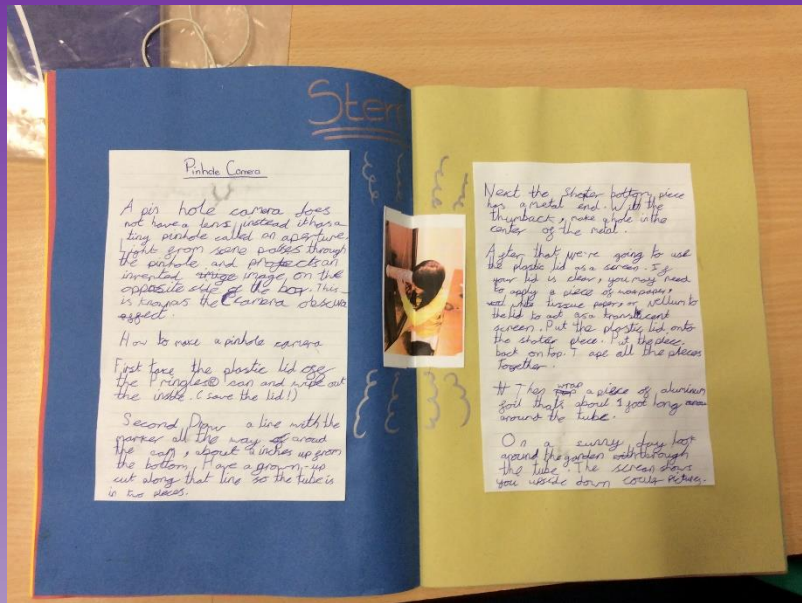 Stem
Pinhole Camera
A pin hole camera does
not have a lens, instead it has a
tiny pinhole called an aperture.
Light from some passes through
the pinhole and projects an
invented image, on the
opposite side of the box. This
is as the camera obscura
effect.
How to make a pinhole camera
First take the plastic lid off
the Pringles® can and wipe out
the inside. (save the lid!)
Second Draw a line with the
marker all the way around
the can, about inches up from
the bottom. Have a grown-up
cut along that line so the tube is
in two pieces.
Next the shoter bottom piece
has a metal end. With the
thumback, make a hole in the
center of the metal.
After that we're going to use
the plastic lid as a screen. If
your lid is clear, you may need
to apply a piece of wax paper,
tissue paper, or vellum to
the lid to act as a translucent
screen. Put the plastic lid onto
the shoter piece. Put the
back on top. Tape all the pieces
together.
wrap a piece of aluminum
foil thats about 1 foot long
around the tube.
On a day look
around the garden through
the tube. The screan shows
you upside down